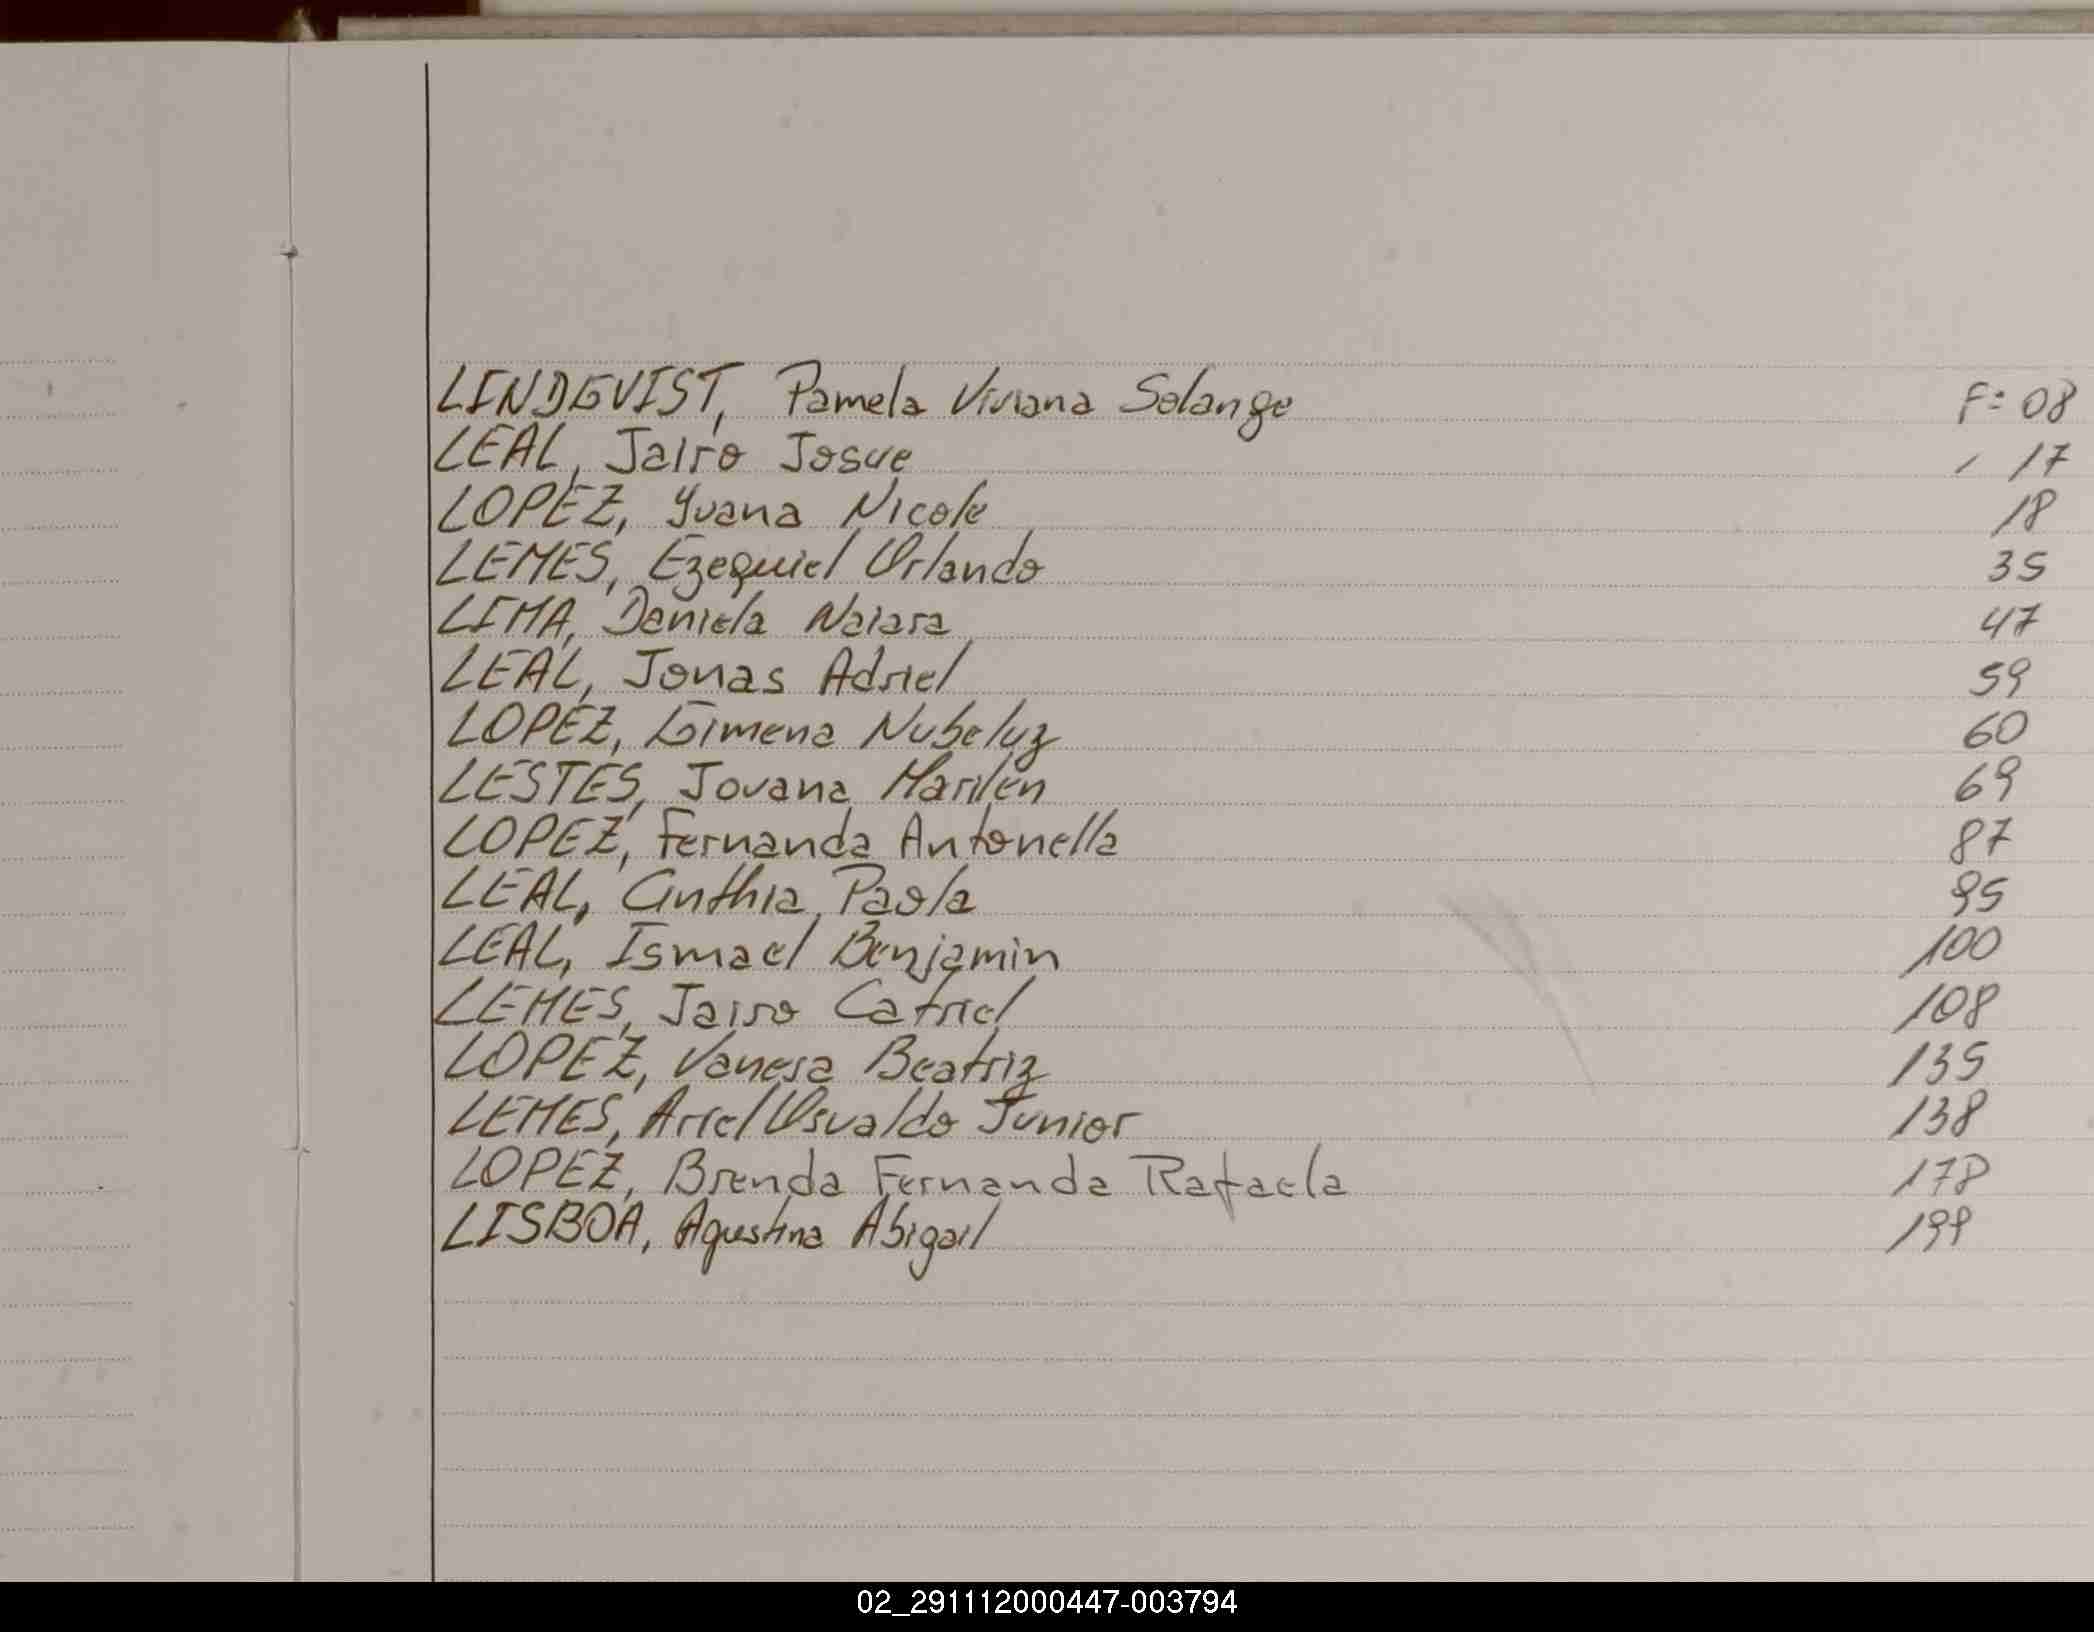 LINDGVIST, Pamela Viviana Solange F= 08
LEAL, Jairo Josue 17
LOPEZ, Yvana Nicole 18
LEMES, Ezequiel Orlando 35
LIMA, Daniela Naiara 47
LEAL, Jonas Adriel 59
LOPEZ, Gimena Nubeluz 60
LESTES, Jovana Marilen 69
LOPEZ, Fernanda Antonella 87
LEAL, Cinthia Paola 95
LEAL, Ismael Benjamin 100
LEMES, Jairo Catriel 108
LOPEZ, Vanesa Beatriz 135
LEMES, Ariel Osvaldo Junior 138
LOPEZ, Brenda Fernanda Rafaela 178
LISBOA, Agustina Abigail 199
02_291112000447-003794